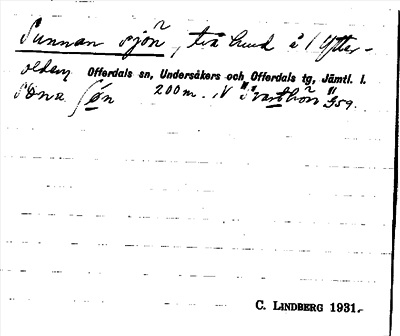 Sunnan sjön, två hus å 1 Ytter-
olden Offerdals sn, Undersåkers och Offerdals tg, Jämtl. l.
200 m. N "Svartsjön"
C. LINDBERG 1931.